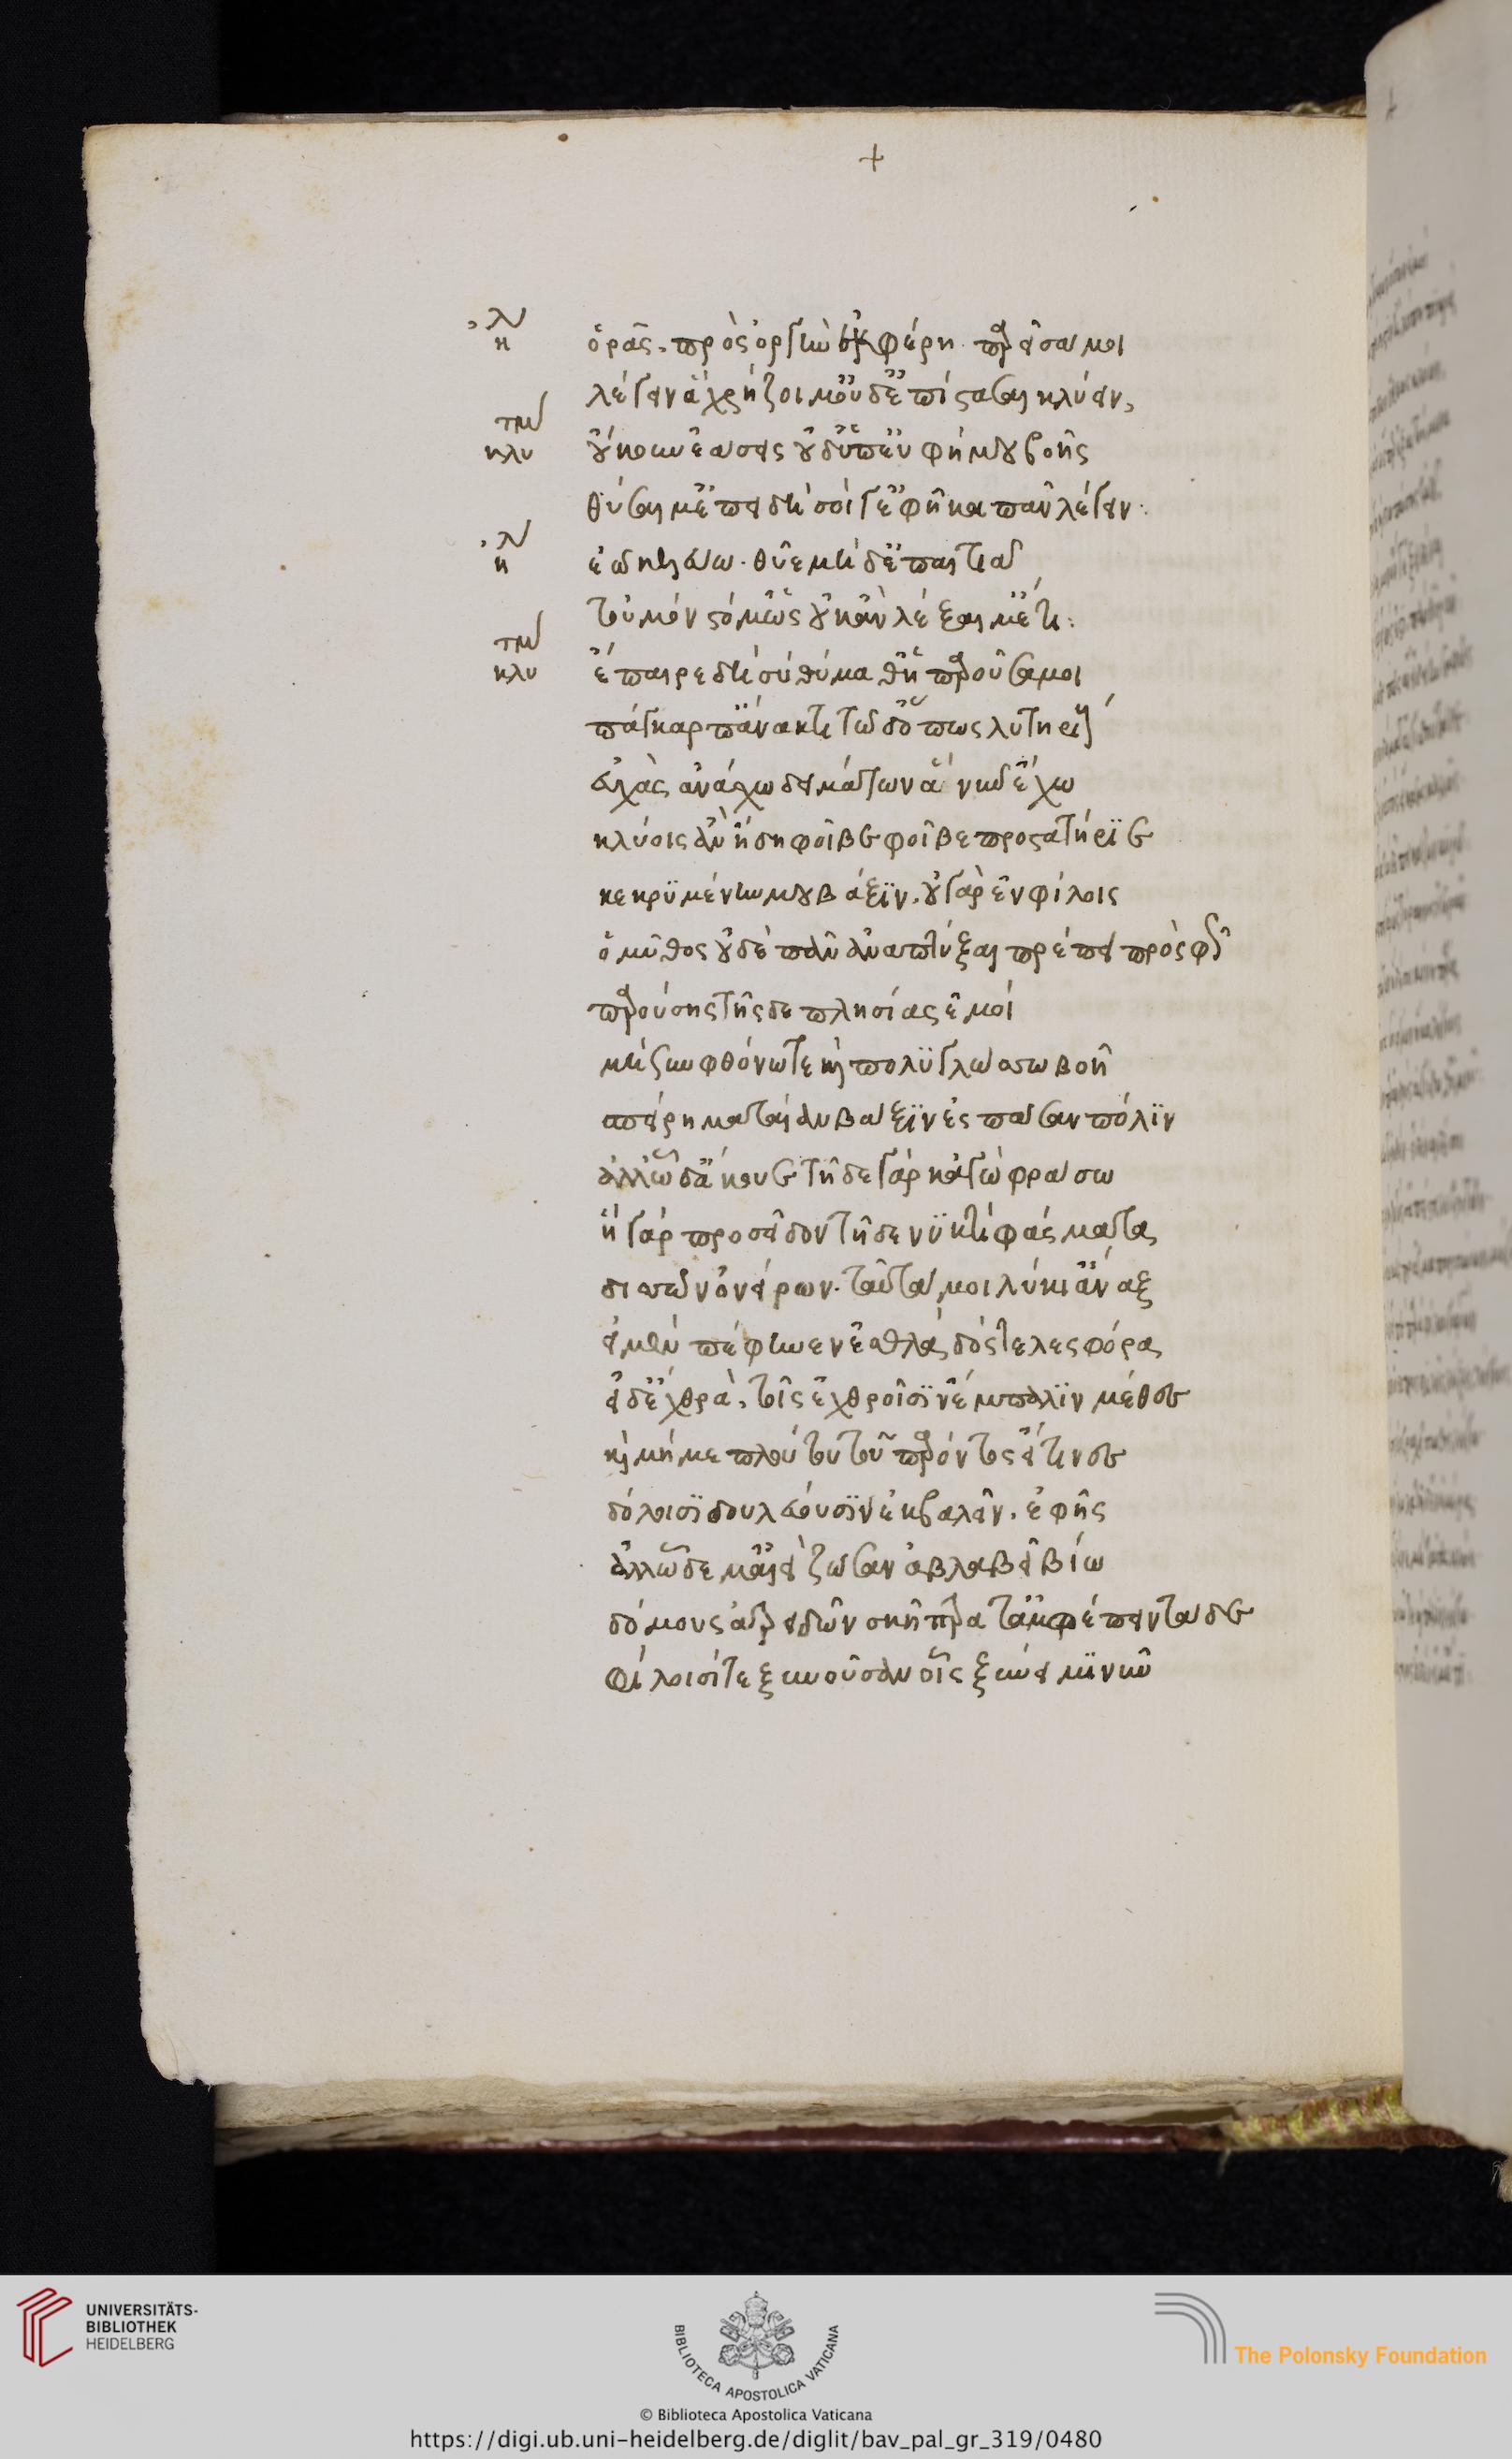 +
ηλ ὁρᾶς. πρὸς ὀργὴν ἐκφέρῃ. παρεῖσά μοι
λέγειν ἃ χρῄζοιμ' οὐδ' ἐπίστασαι κλύειν,
κλυτμ οὔκουν ἐάσεις οὐδ' ὑπ' εὐφήμου βοῆς
θῦσαί μ' ἐπειδὴ σοί γ' ἐφῆκα πᾶν λέγειν:
ηλ ἐῶ κελεύω. θῦε μὴ δ' ἐπαιτιῶ
τοὐμὸν στόμ' ὡς οὐκ ἂν λέξαιμ' ἔτι:
κλυτμ ἔπαιρε δὴ σὺ θύμαθ' ἡ παροῦσά μοι
πάγκαρπ' ἄνακτι τῷδ' ὅπως λυτηρίους
εὐχὰς ἀνάσχω δειμάτων ἃ νῦν ἔχω
κλύοις ἂν ἤδη φοῖβε φοῖβε προστατήριε
κεκρυμένην μου βάξιν. οὐ γὰρ ἐν φίλοις
ὁ μῦθος οὐδὲ πᾶν ἀναπτύξαι πρέπει πρὸς φῶς
παρούσης τῆσδε πλησίας ἐμοὶ
μὴ ξὺν φθόνῳ τε καὶ πολυγλώσσῳ βοῇ
σπείρῃ ματαίαν βάξιν ἐς πᾶσαν πόλιν
ἀλλ' ὧδ' ἄκουε τῇδε γὰρ κἀγὼ φράσω
ἣ γὰρ προσεῖδον τῇδε νυκτὶ φάσματα
δισσῶν ὀνείρων. ταῦτά μοι λύκι' ἄναξ
εἰ μὲν πέφηνεν ἐσθλὰ δὸς τελεσφόρα
εἰ δ' ἐχθρὰ, τοῖς ἐχθροῖσιν ἔμπαλιν μέθες
καὶ μή με πλούτου τοῦ παρόντος εἴ τινες
δόλοισι βουλεύουσιν ἐκβαλεῖν. ἐφῇς
ἀλλ' ὧδέ μ' αἰεὶ ζῶσαν ἀβλαβεῖ βίῳ
δόμους ἀτρειδῶν σκῆπτρα τ' ἀμφέπειν τάδε
φίλοισί τε ξυνοῦσαν οἷς ξύνειμι νῦν
UNIVERSITÄTS-
BIBLIOTHEK
HEIDELBERG
BIBLIOTECA APOSTOLICA VATICANA
The Polonsky Foundation
© Biblioteca Apostolica Vaticana
https://digi.ub.uni-heidelberg.de/diglit/bav_pal_gr_319/0480